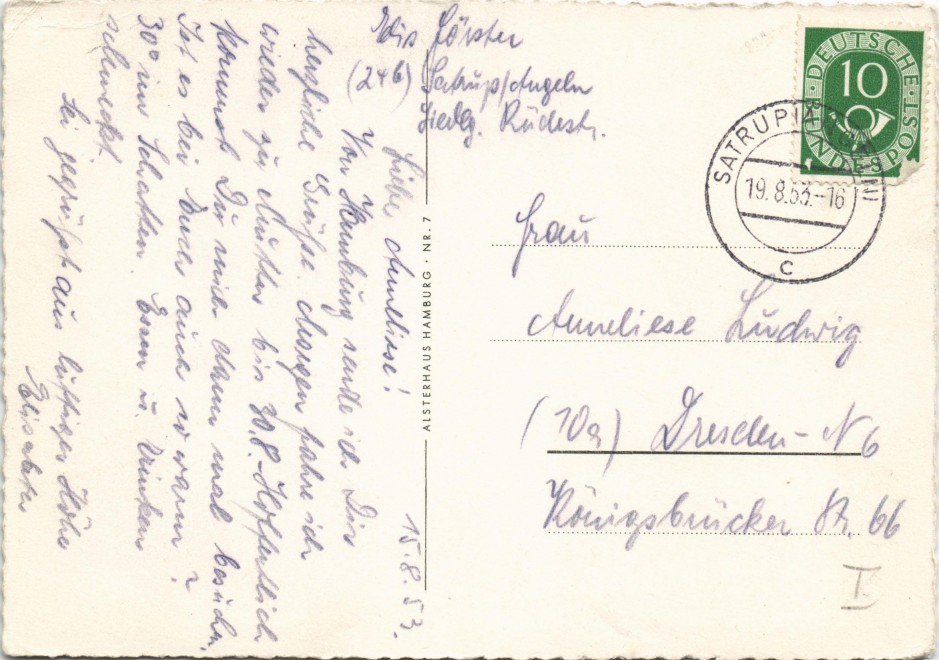 Elis Förster
(24b) Satrup/Angeln
Siedlg. Rüdestr.
15.8.53.
Liebe Anneliese!
Von Hamburg sende ich Dir
herzliche Grüße. Morgen fahre ich
wieder zu Mutter bis 30.8. - Hoffentlich
kommst Du mich dann mal besuchen.
Ist es bei Euch auch so warm?
30° im Schatten. Essen u. Trinken
schmeckt.
Sei gegrüßt aus luftiger Höhe
Elisabeth
ALSTERHAUS HAMBURG · NR. 7
DEUTSCHE
BUNDESPOST
10
SATRUP
19.8.53.-16
c
Frau
Anneliese Ludwig
(10a) Dresden-N 6
Königsbrücker Str. 66
I